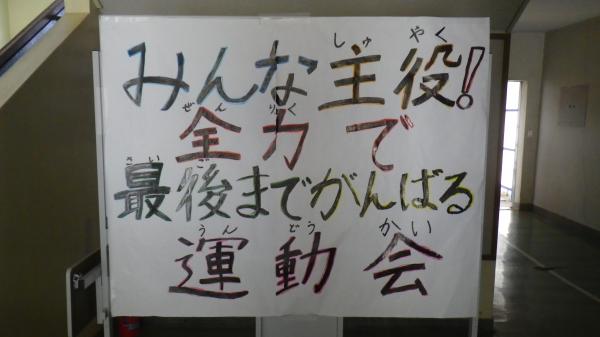 しゅ やく
みんな主役!
ぜん りょく
全力で
さい ご
最後までがんばる
うん どう かい
運動会